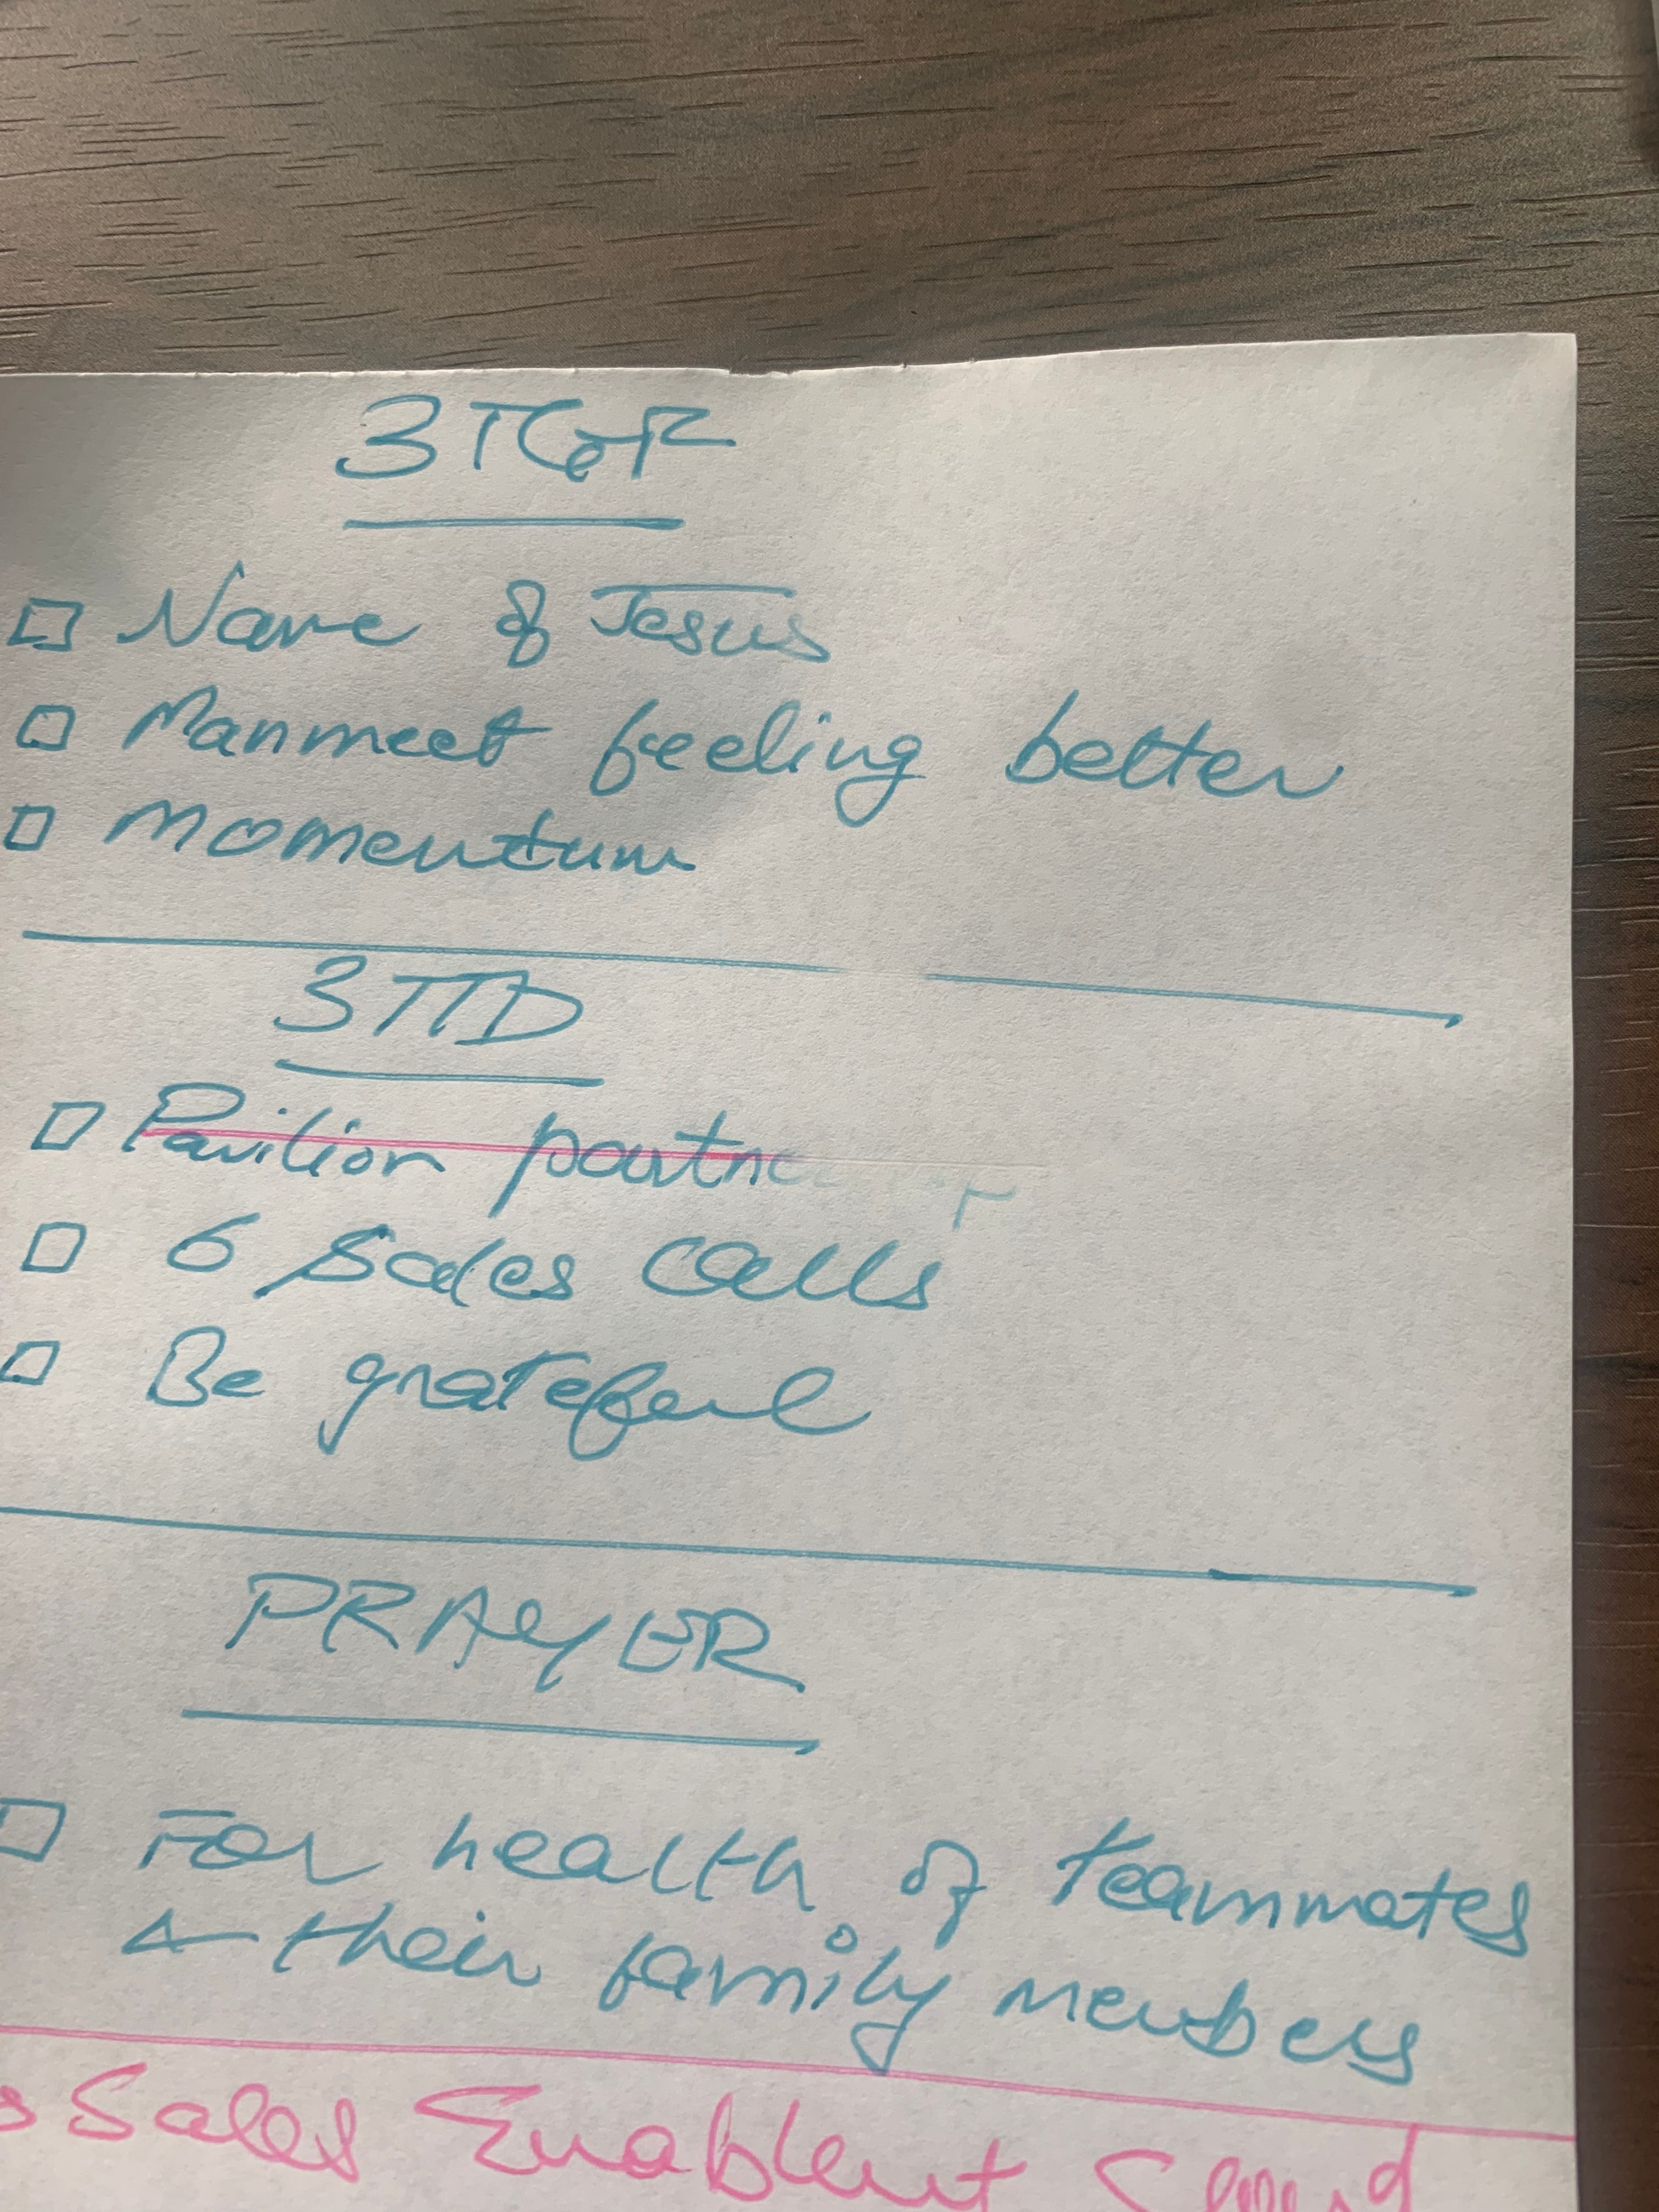 3TGF
Name of Jesus
Manmeet feeling better
Momentum
3TTD
Pavilion
6 Sales calls
Be grateful
PRAYER
For health of teammates
& their family members
Sales